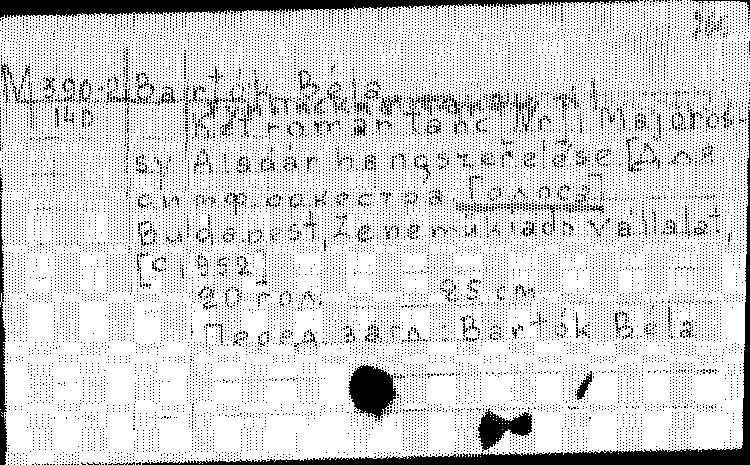 М 390-2 Bartók Béla
140 Két román tánc Nr. 1 Majoros-
sy Aladár hangszerelése [Для
симф. оркестра [Голоса]
Budapest, Zeneműkiadó Vállalat,
[c 1952]
20 гол. 25 cm.
Перед загл: Bartók Béla